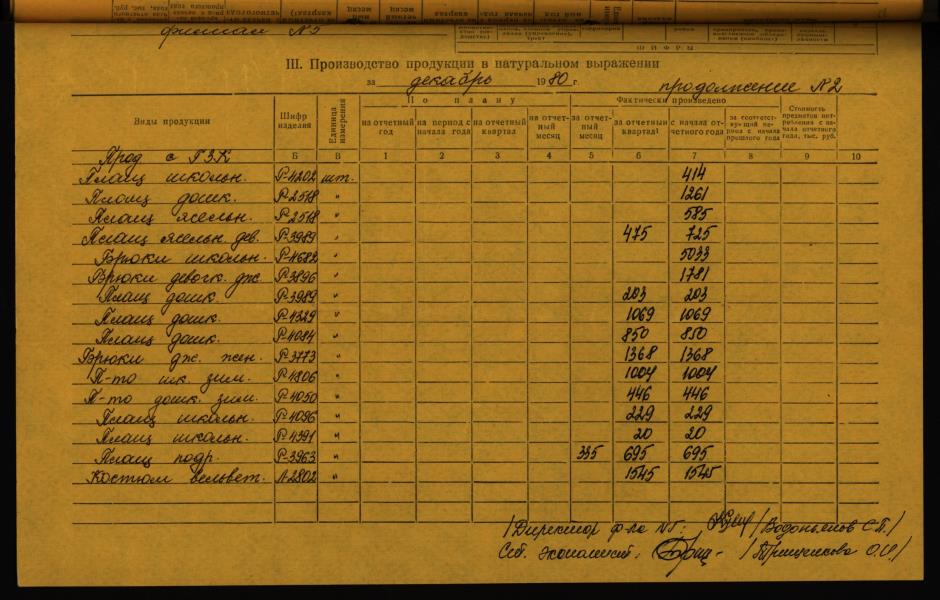 филиал N5
Ш И Ф Р Ы
III. Производство продукции в натуральном выражении
за декабрь 1980 г. продолжение N2
Виды продукции Шифр изделия Единица измерения По плану Фактически произведено Стоимость предметов потребления с начала отчетного года, тыс. руб.
на отчетный год на период с начала года на отчетный квартал на отчетный месяц за отчетный месяц за отчетный квартал с начала отчетного года за соответствующий период с начала прошлого года
Б В 1 2 3 4 5 6 7 8 9 10
Прод с ГЗК
Плащ школьн. Р-4202 шт. 414
Плащ дошк. Р-2518 " 1261
Плащ ясельн. Р-2518 " 585
Плащ ясельн. дев. Р-3989 " 475 725
Брюки школьн. Р-4682 " 5033
Брюки девочк. дж. Р-3896 " 1781
Плащ дошк Р-3989 " 203 203
Плащ дошк. Р-4329 " 1069 1069
Плащ дошк. Р-4084 " 850 850
Брюки дж. жен. Р-3773 " 1368 1368
П-то шк. зим. Р-4806 " 1004 1004
П-то дошк. зим. Р-4050 " 446 446
Плащ школьн. Р-4096 " 229 229
Плащ школьн. Р-4391 " 20 20
Плащ подр. Р-3963 " 335 695 695
Костюм вельвет. А-2802 " 1545 1545
/Директор ф-ла N5: /Водопьянов С.П./
Ст. экономист: /Грищенкова О.И/